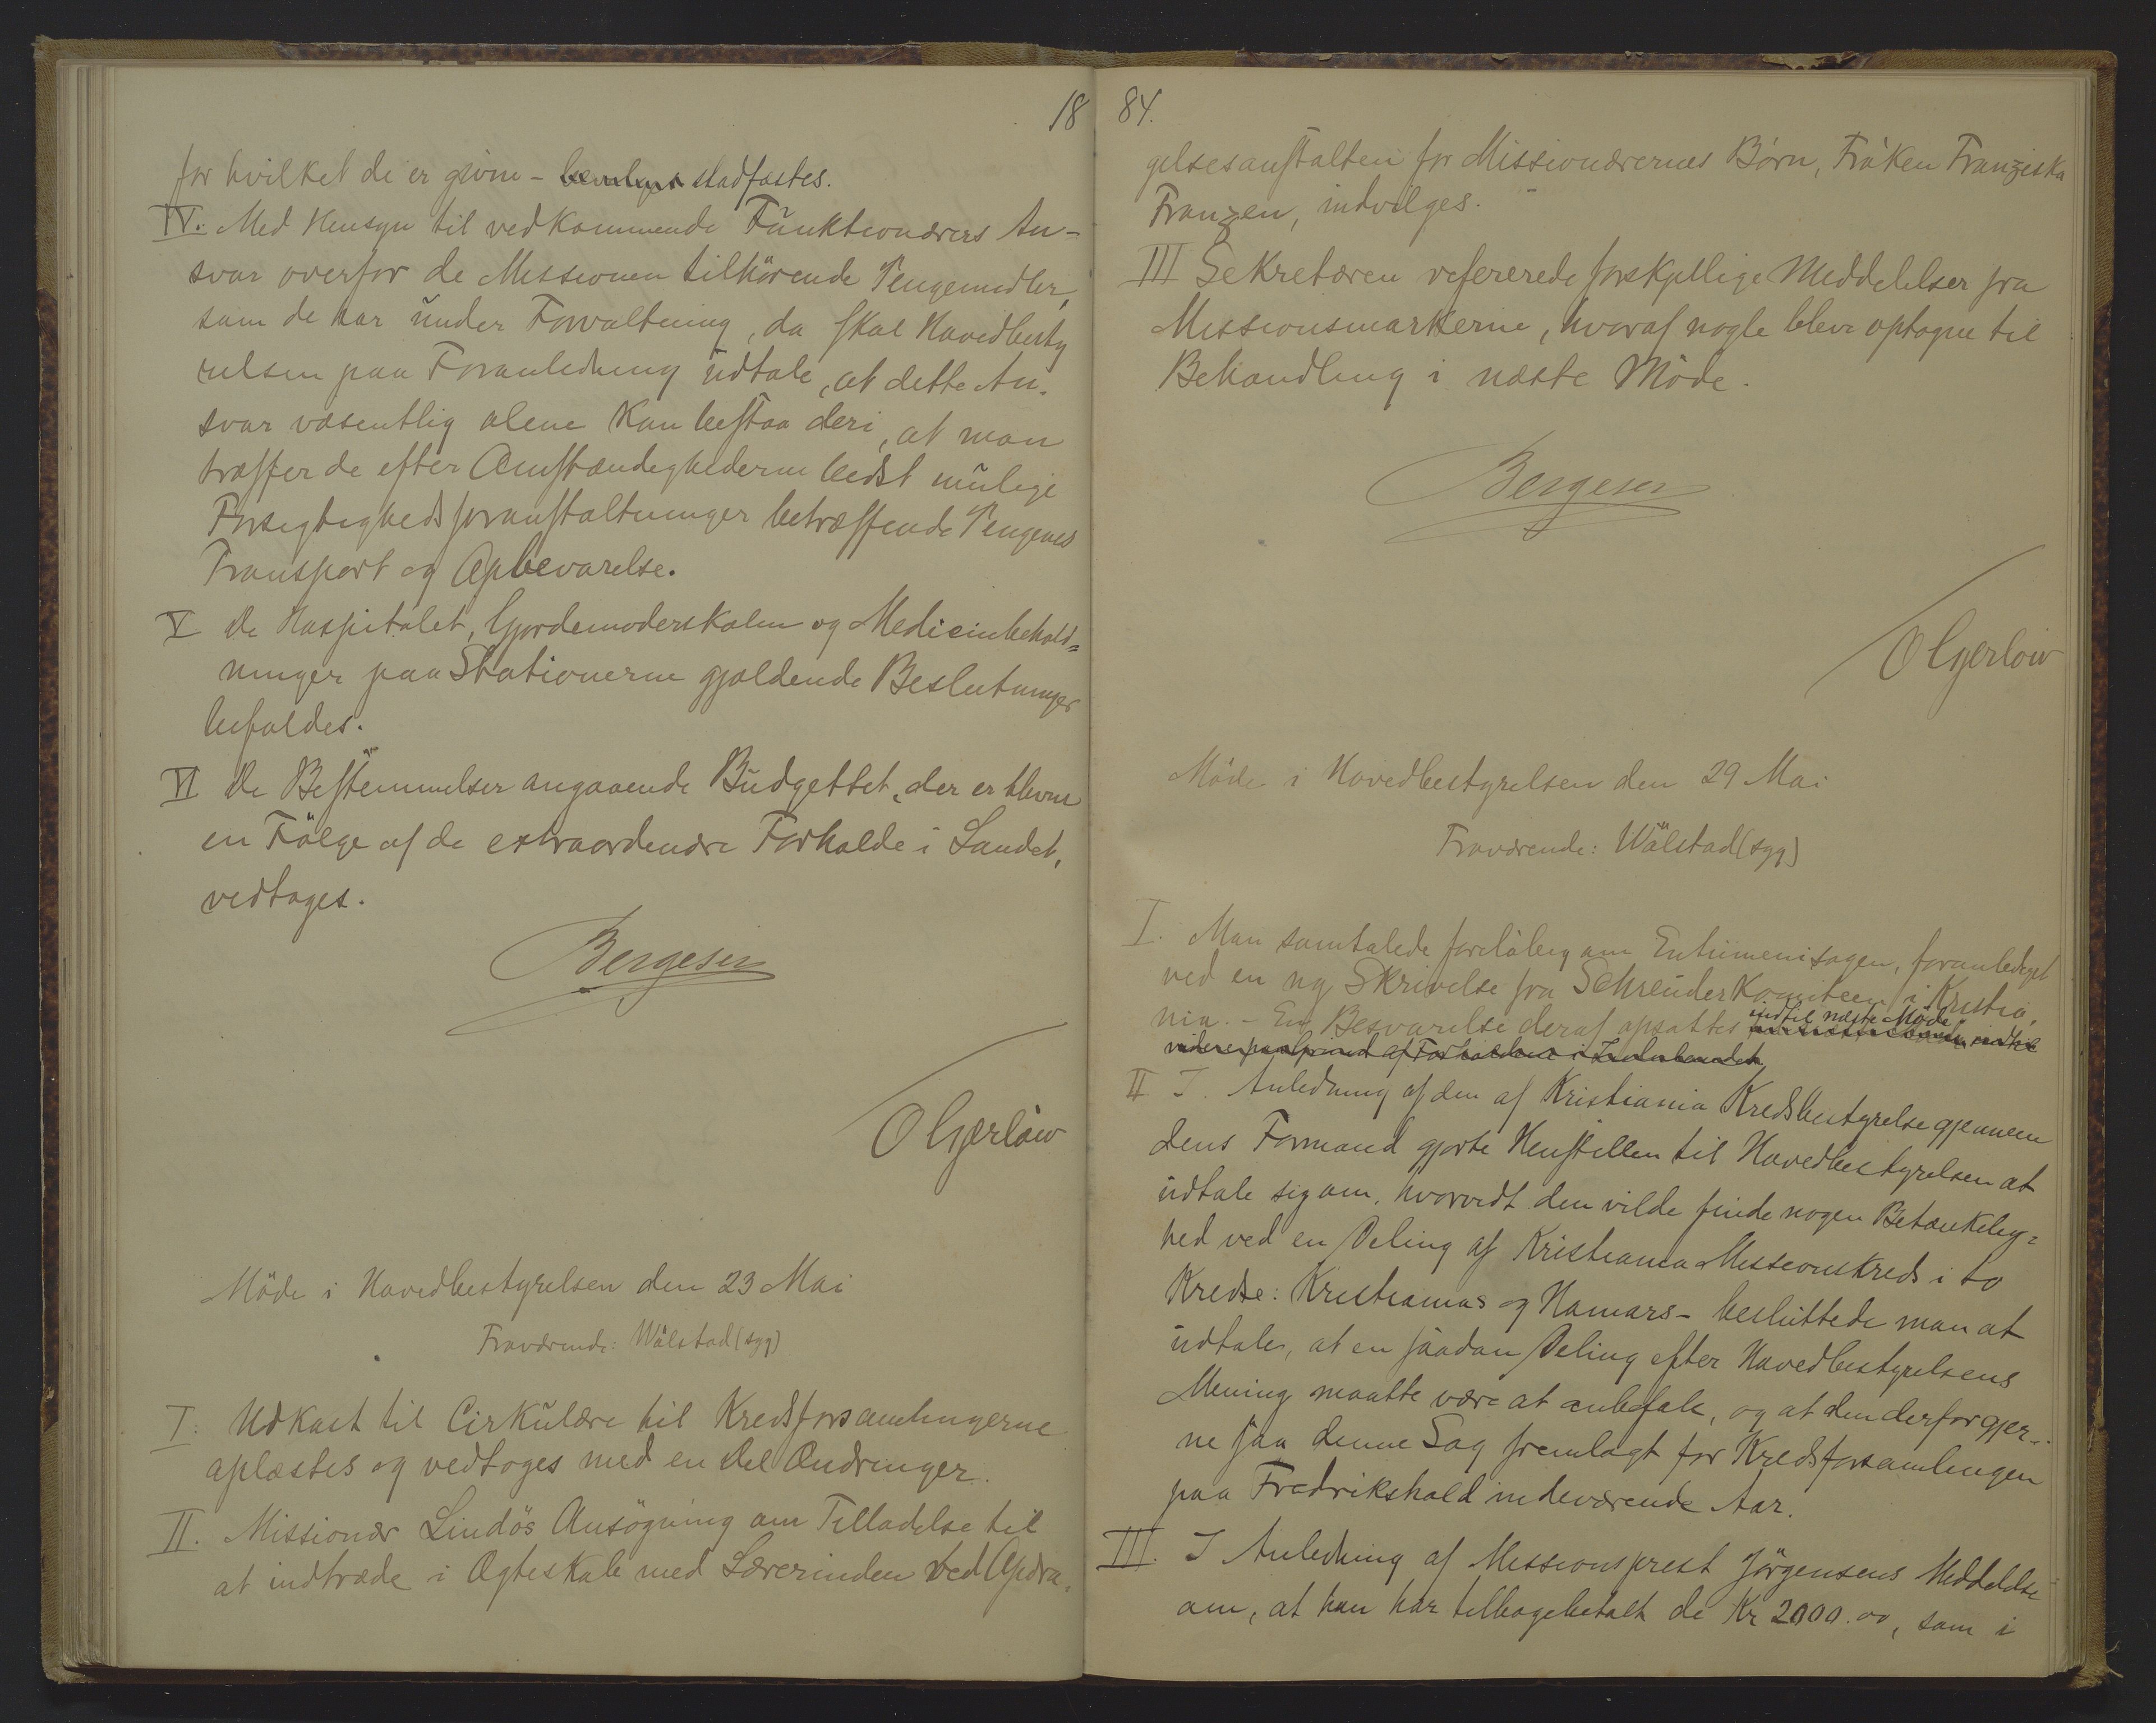 18
for hvilket de er givne – bevilges stadfæstes.
IV. Med Hensyn til vedkommende Funktionærers An-
svar overfor de Missionen tilhörende Pengemidler,
som de har under Forvaltning, da skal Hovedbesty
relsen paa Foranledning udtale, at dette An-
svar væsentlig alene kan bestaa deri, at man
træffer de efter Omstændighederne bedst mulige
Forsigtighedsforanstaltninger betræffende Pengenes
Transport og Opbevarelse.
V De Hospitalet, Gjordemoderskolen og Medicinbehold=
ninger paa Stationerne gjældende Beslutninger
bifaldes.
VI De Bestemmelser angaaende Budgettet, der er blevne
en Fölge af de extraordenære Forholde i Landet,
vedtoges.
Bergesen
O Gjerlöw
Möde i Hovedbestyrelsen den 23 Mai
Fraværende: Wålstad (syg)
I. Udkast til Cirkulære til Kredsforsamlingerne
oplæstes og vedtoges med en Del Ændringer.
II. Missionær Lindös Ansögning om Tilladelse til
at indtræde i Ægteskab med Lærerinden ved Opdra-
84.
gelsesanstalten for Missionærernes Börn, Fröken Franziska
Franzen, indvilges.
III Sekretæren refererede forskjellige Meddelelser fra
Missionsmarkerne, hvoraf nogle bleve optagne til
Behandling i næste Möde.
Bergesen
O Gjerlöw
Möde i Hovedbestyrelsen den 29 Mai
Fraværende: Wålstad (syg)
I. Man samtalede forelöbig om Entumenisagen, foranlediget
ved en ny Skrivelse fra Schreuder Komiteen i Kristia,
nia. – En Besvarelse deraf opsattes indtil næste Möde.
videre paa Grund af Forholdene i Zululandet
II I Anledning af den af Kristiania Kredsbestyrelse gjennem
dens Formand gjorte Henstillen til Hovedbestyrelsen at
udtale sig om, hvorvidt den vilde finde nogen Betænkelig=
hed ved en Deling af Kristiania Missionskreds i to
Kredse: Kristianias og Hamars – besluttede man at
udtale, at en saadan Deling efter Hovedbestyrelsens
Mening maatte være at anbefale, og at den derfor gjer-
ne saa denne Sag fremlagt for Kredsforsamlingen
paa Fredrikshald indeværende Aar.
III. I Anledning af Missionsprest Jörgensens Meddelelse
om, at han har tilbagebetalt de Kr 2000.00, som i